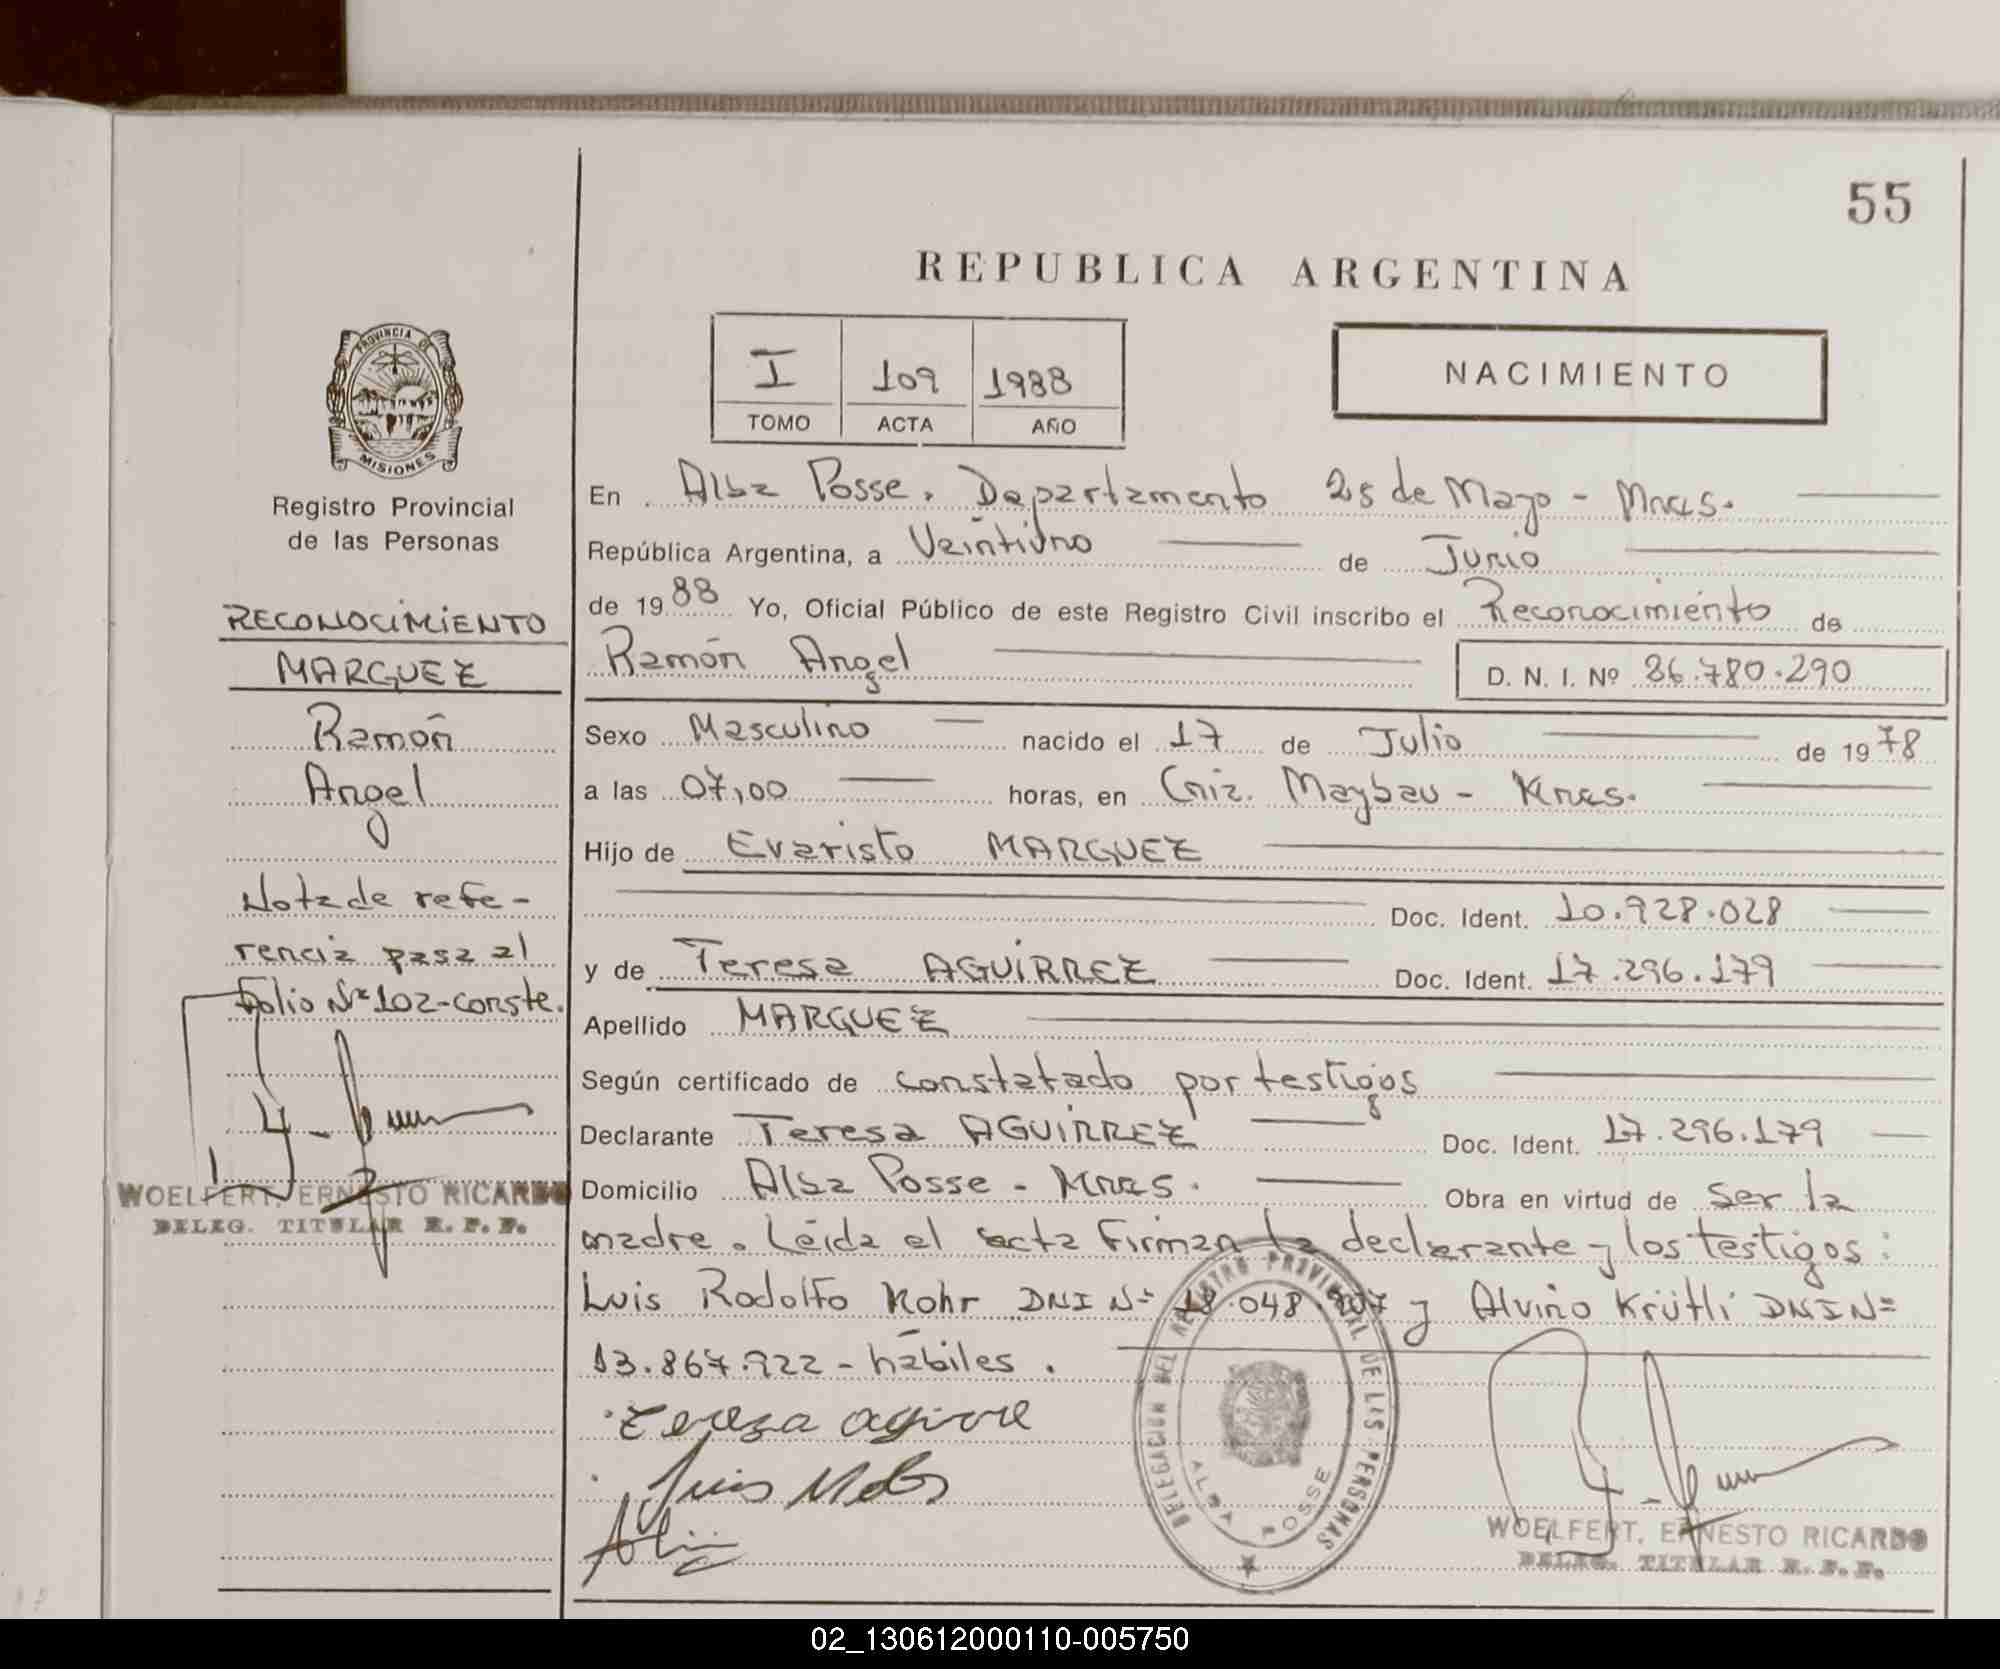 55
REPUBLICA ARGENTINA
I 109 1988
TOMO ACTA AÑO
NACIMIENTO
PROVINCIA DE
MISIONES
Registro Provincial
de las Personas
RECONOCIMIENTO
MARQUEZ
Ramón
Angel
Nota de refe-
rencia pasa al
Folio Nº 102-conste.
WOELFERT, ERNESTO RICARDO
DELEG. TITULAR R. P. P.
En Alba Posse. Departamento 25 de Mayo - Mnes.
República Argentina, a Veintiuno de Junio
de 1988 Yo, Oficial Público de este Registro Civil inscribo el Reconocimiento de
Ramón Angel D. N. I. Nº 36.780.290
Sexo Masculino nacido el 17 de Julio de 1978
a las 07,00 horas, en Cnia. Maybau - Mnes.
Hijo de Evaristo MARQUEZ
Doc. Ident. 10.928.028
y de Teresa AGUIRREZ Doc. Ident. 17.296.179
Apellido MARQUEZ
Según certificado de constatado por testigos
Declarante Teresa AGUIRREZ Doc. Ident. 17.296.179
Domicilio Alba Posse - Mnes. Obra en virtud de ser la
madre. Léida el acta Firman la declarante y los testigos:
Luis Rodolfo Kohr DNI Nº 18.048. y Alvino Krütli DNI Nº
13.867.922 - hábiles.
Tereza agirre
Luis
DELEGACION DEL REGISTRO PROVINCIAL DE LAS PERSONAS
ALBA POSSE
WOELFERT, ERNESTO RICARDO
DELEG. TITULAR R. P. P.
02_130612000110-005750